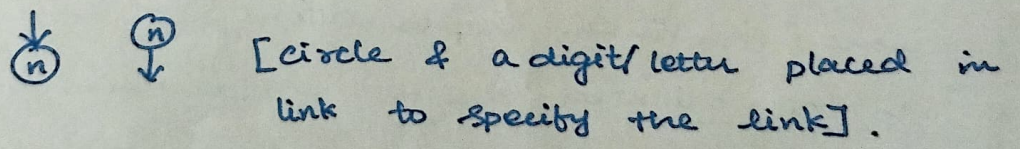 n n [circle & a digit/ letter placed in
link to specify the link].